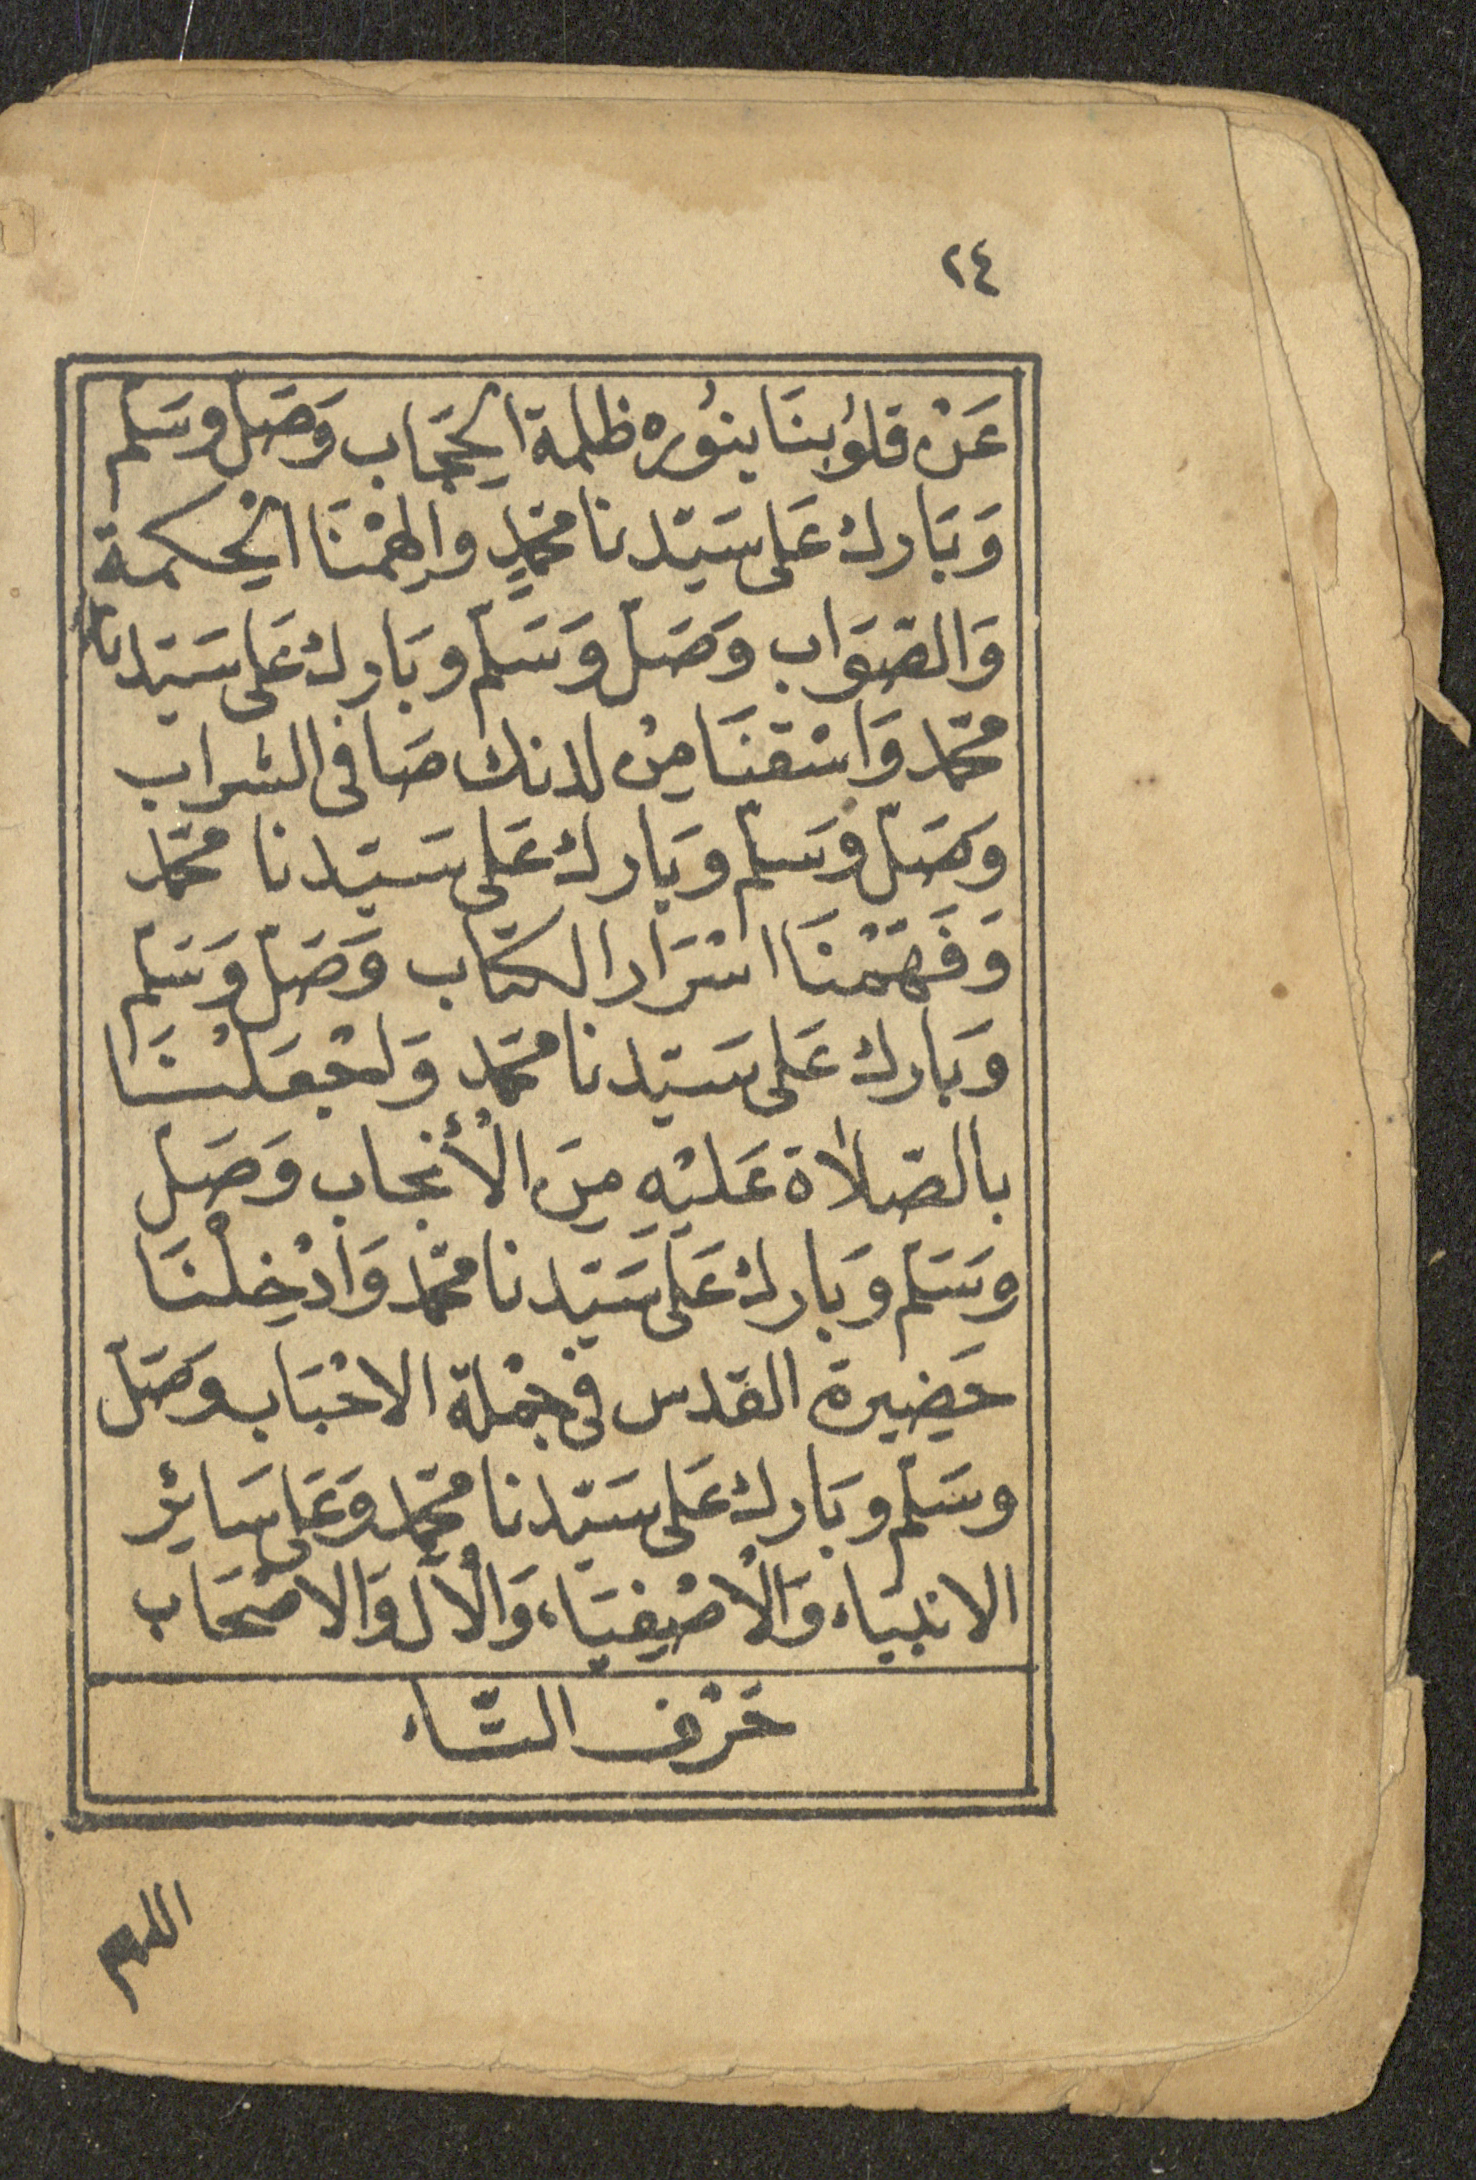 ٢٤
عَنْ قلوُبنَا بنوُره ظلمة الحِجَاب وَصَلّ وسَلم
وَبَارك عَلى سَيّدنا محمّدٍ والهمْنَا الحْكمة
وَالصّوَاب وَصَلّ وَسَلّم وبَارك عَلى سَيّدنا
محمّد وَاسْقنَا مِنْ لدنك صَافى الشراب
وَصَلّ وَسَلّم وبَارك عَلى سَيّدنا محمّد
وَفَهّمْنَا اسْرَار الكتاب وَصَلّ وَسَلّم
وَبَارك عَلى سَيّدنا محمّد وَاجْعَلْنَا
بالصّلاة عَليْهِ مِنَ الْأنجاب وَصَلّ
وسَلّم وَبَارك عَلى سَيّدنا محمّد وَادْخِلْنَا
حَضِيرة القدس فى جمْلة الاحْبَاب وَصَلّ
وسَلّم وبَارك عَلى سَيّدنا محمّد وَعَلى سَائِر
الانبيَاء وَالْاصْفِيَاء وَالْآل وَالاصْحَاب
حَرْف التّاء
اللهم